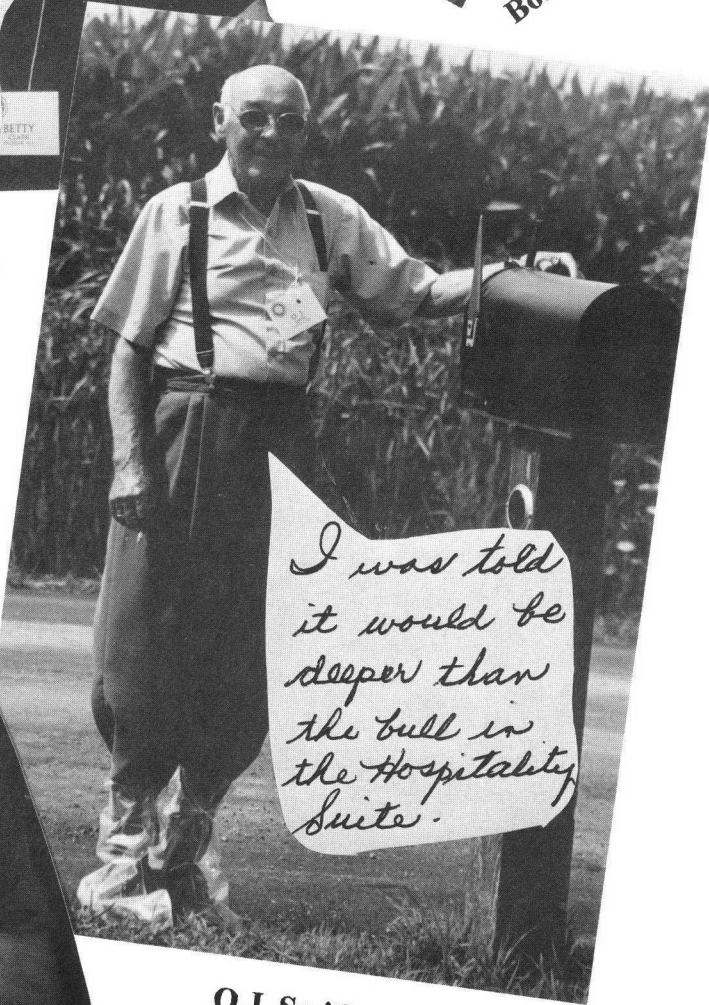 BETTY
CLARK
I was told
it would be
deeper than
the bull in
the Hospitality
Suite.